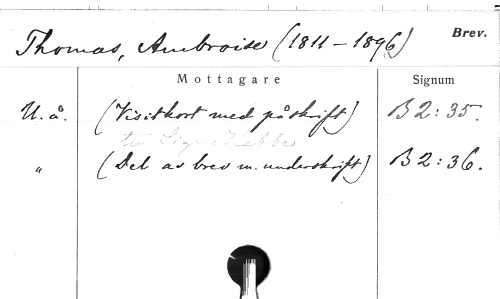 Thomas, Ambroise (1811 – 1896) Brev.
Mottagare Signum
U. å. (Visitkort med påskrift) B 2: 35.
till Signe Hebbe
„ (Del av brev m. underskrift) B 2: 36.